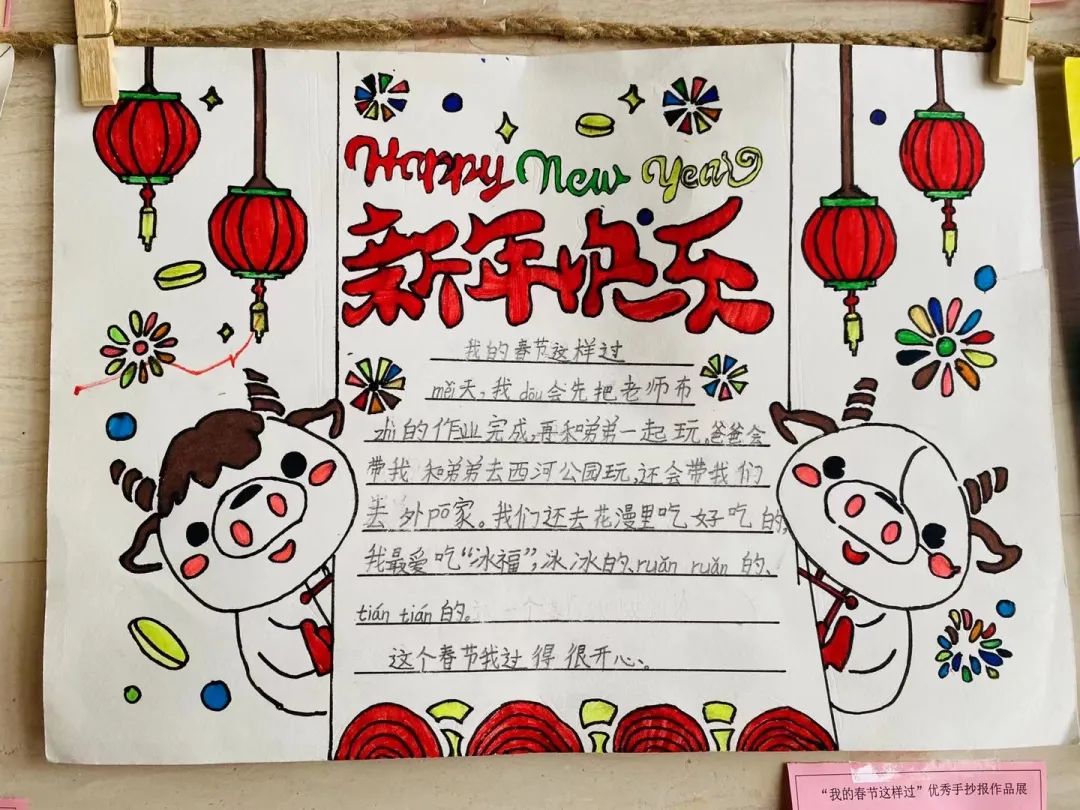 Happy New Year
新年快乐
我的春节这样过
měi天,我dōu会先把老师布
zhì的作业完成,再和弟弟一起玩。爸爸会
带我和弟弟去西河公园玩,还会带我们
去外pó家。我们还去花漫里吃好吃的,
我最爱吃“冰福”,冰冰的、ruǎn ruǎn 的、
tián tián 的。
这个春节我过得很开心。
“我的春节这样过”优秀手抄报作品展